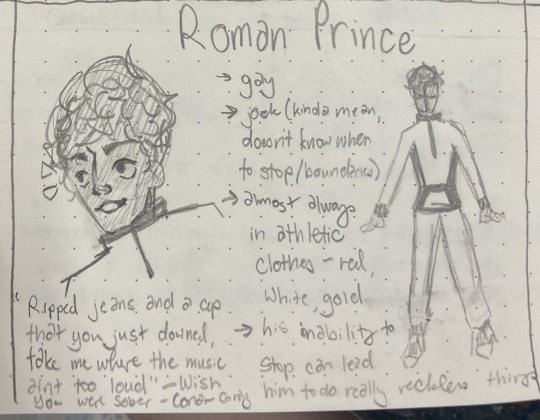 Roman Prince
→ gay
→ jock (kinda mean,
doesn't know when
to stop/boundaries)
→ almost always
in athletic
clothes - red,
white, gold
→ his inability to
stop can lead
him to do really reckless things
"Ripped jeans and a cup
that you just downed,
take me where the music
ain't too loud" - Wish
you were sober - Conan Gray